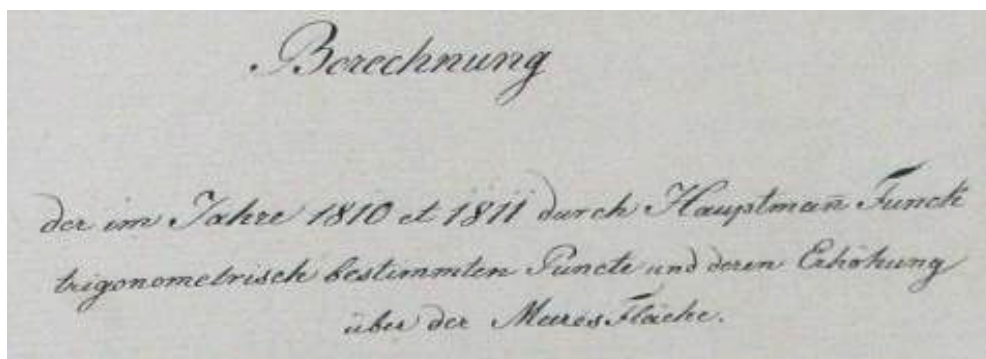 Berechnung
der im Jahre 1810 et 1811 durch Hauptmañ Funck
trigonometrisch bestimmten Puncte und deren Erhöhung
über der Meeres Fläche.